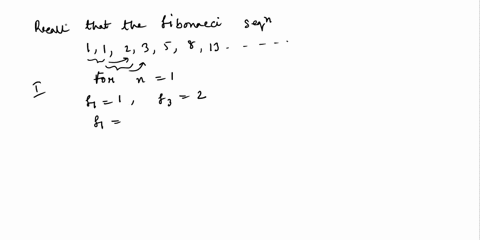 Recall that the fibonacci seqⁿ
1, 1, 2, 3, 5, 8, 13 - - - - -
For n = 1
I
f₁ = 1, f₃ = 2
f₁ =